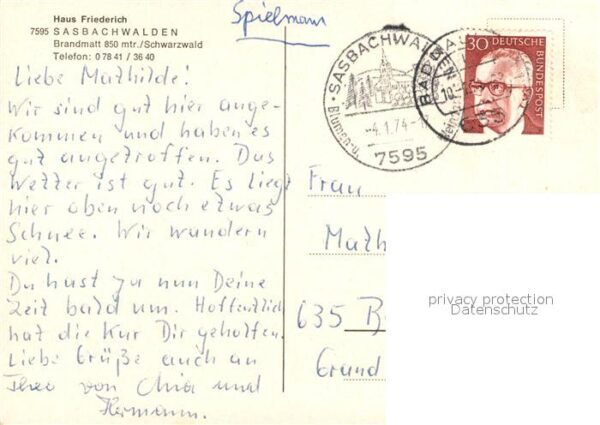 Haus Friederich
7595 SASBACHWALDEN
Brandmatt 850 mtr./Schwarzwald
Telefon: 0 78 41 / 36 40
Spielmann
Liebe Mathilde!
Wir sind gut hier ange-
kommen und haben es
gut angetroffen. Das
Wetter ist gut. Es liegt
hier oben noch etwas
Schnee. Wir wandern
viel.
Du hast ja nun Deine
Zeit bald um. Hoffentlich
hat die Kur Dir geholfen.
Liebe Grüße auch an
Theo von Chia und
Hermann.
SASBACHWALDEN
Blumen- u.
-4.1.74-
7595
30
DEUTSCHE
BUNDESPOST
Frau
Math
635 B
Grund
privacy protection
Datenschutz